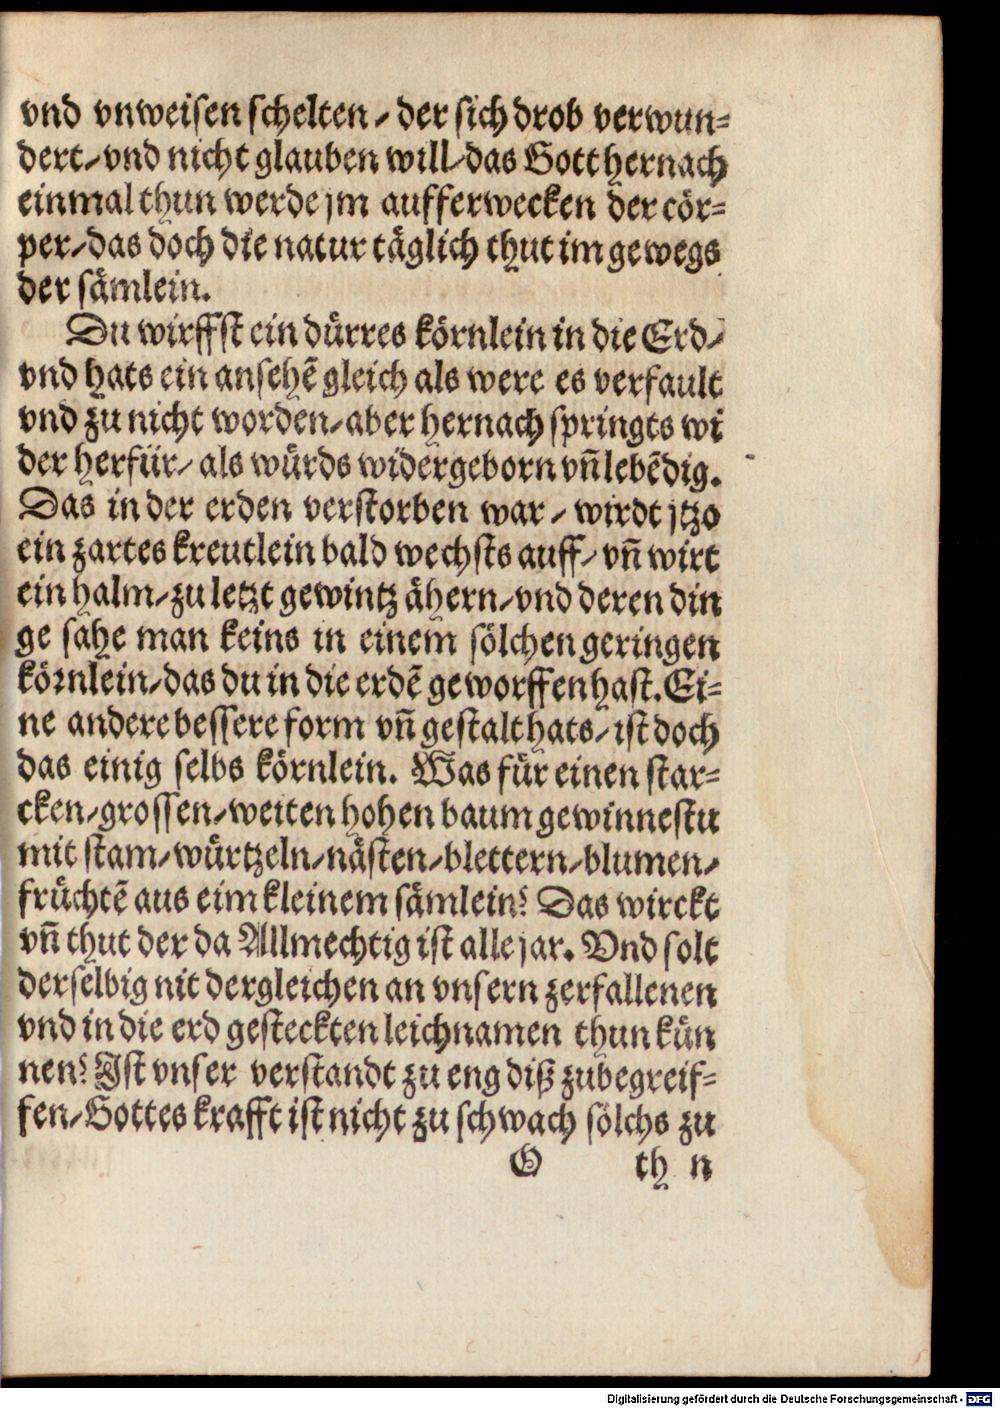 vnd vnweisen schelten / der sich drob verwun=
dert / vnd nicht glauben will / das Gott hernach
einmal thun werde jm aufferwecken der cör=
per / das doch die natur täglich thut im gewegs
der sämlein.
Du wirffst ein dürres körnlein in die Erd /
vnd hats ein ansehẽ gleich als were es verfault
vnd zu nicht worden / aber hernach springts wi
der herfür / als würds widergeborn vñ lebẽdig.
Das in der erden verstorben war / wirdt jtzo
ein zartes kreutlein bald wechsts auff / vñ wirt
ein halm / zu letzt gewintz ähern / vnd deren din
ge sahe man keins in einem sölchen geringen
körnlein / das du in die erdẽ geworffen hast. Ei=
ne andere bessere form vñ gestalt hats / ist doch
das einig selbs körnlein. Was für einen star=
cken / grossen / weiten hohen baum gewinnestu
mit stam / würtzeln / nästen / blettern / blumen /
früchtẽ aus eim kleinem sämlein? Das wirckt
vñ thut der da Allmechtig ist alle jar. Vnd solt
derselbig nit dergleichen an vnsern zerfallenen
vnd in die erd gesteckten leichnamen thun kün
nen? Ist vnser verstandt zu eng diß zubegreif=
fen / Gottes krafft ist nicht zu schwach sölchs zu
G th n
Digitalisierung gefördert durch die Deutsche Forschungsgemeinschaft - DFG